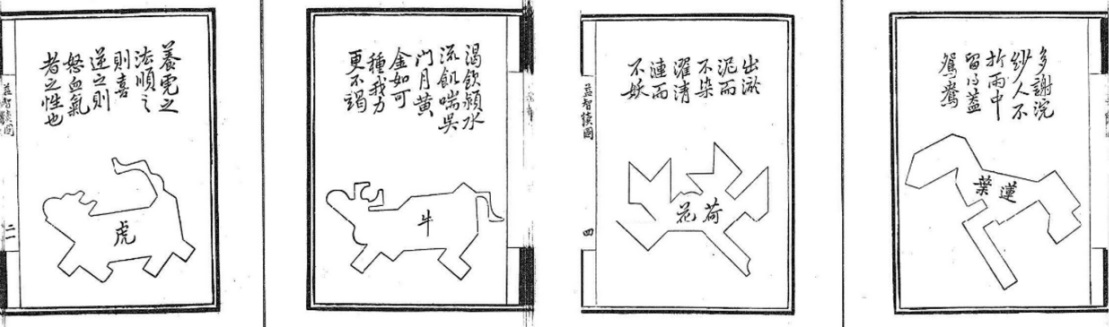 養虎之
法順之
則喜
逆之則
怒血氣
者之性也
虎
二一
渴飲潁水
流飢喘吳
門月黃
金如可
種我力
更不竭
牛
出淤
泥而
不染
濯清
漣而
不妖
荷花
益智續圖
四
多謝浣
紗人不
折雨中
留得蓋
鴛鴦
蓮葉